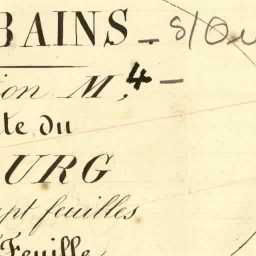 BAINS - s/Ou
ion M, 4 -
te du
URG
pt feuilles
Feuille